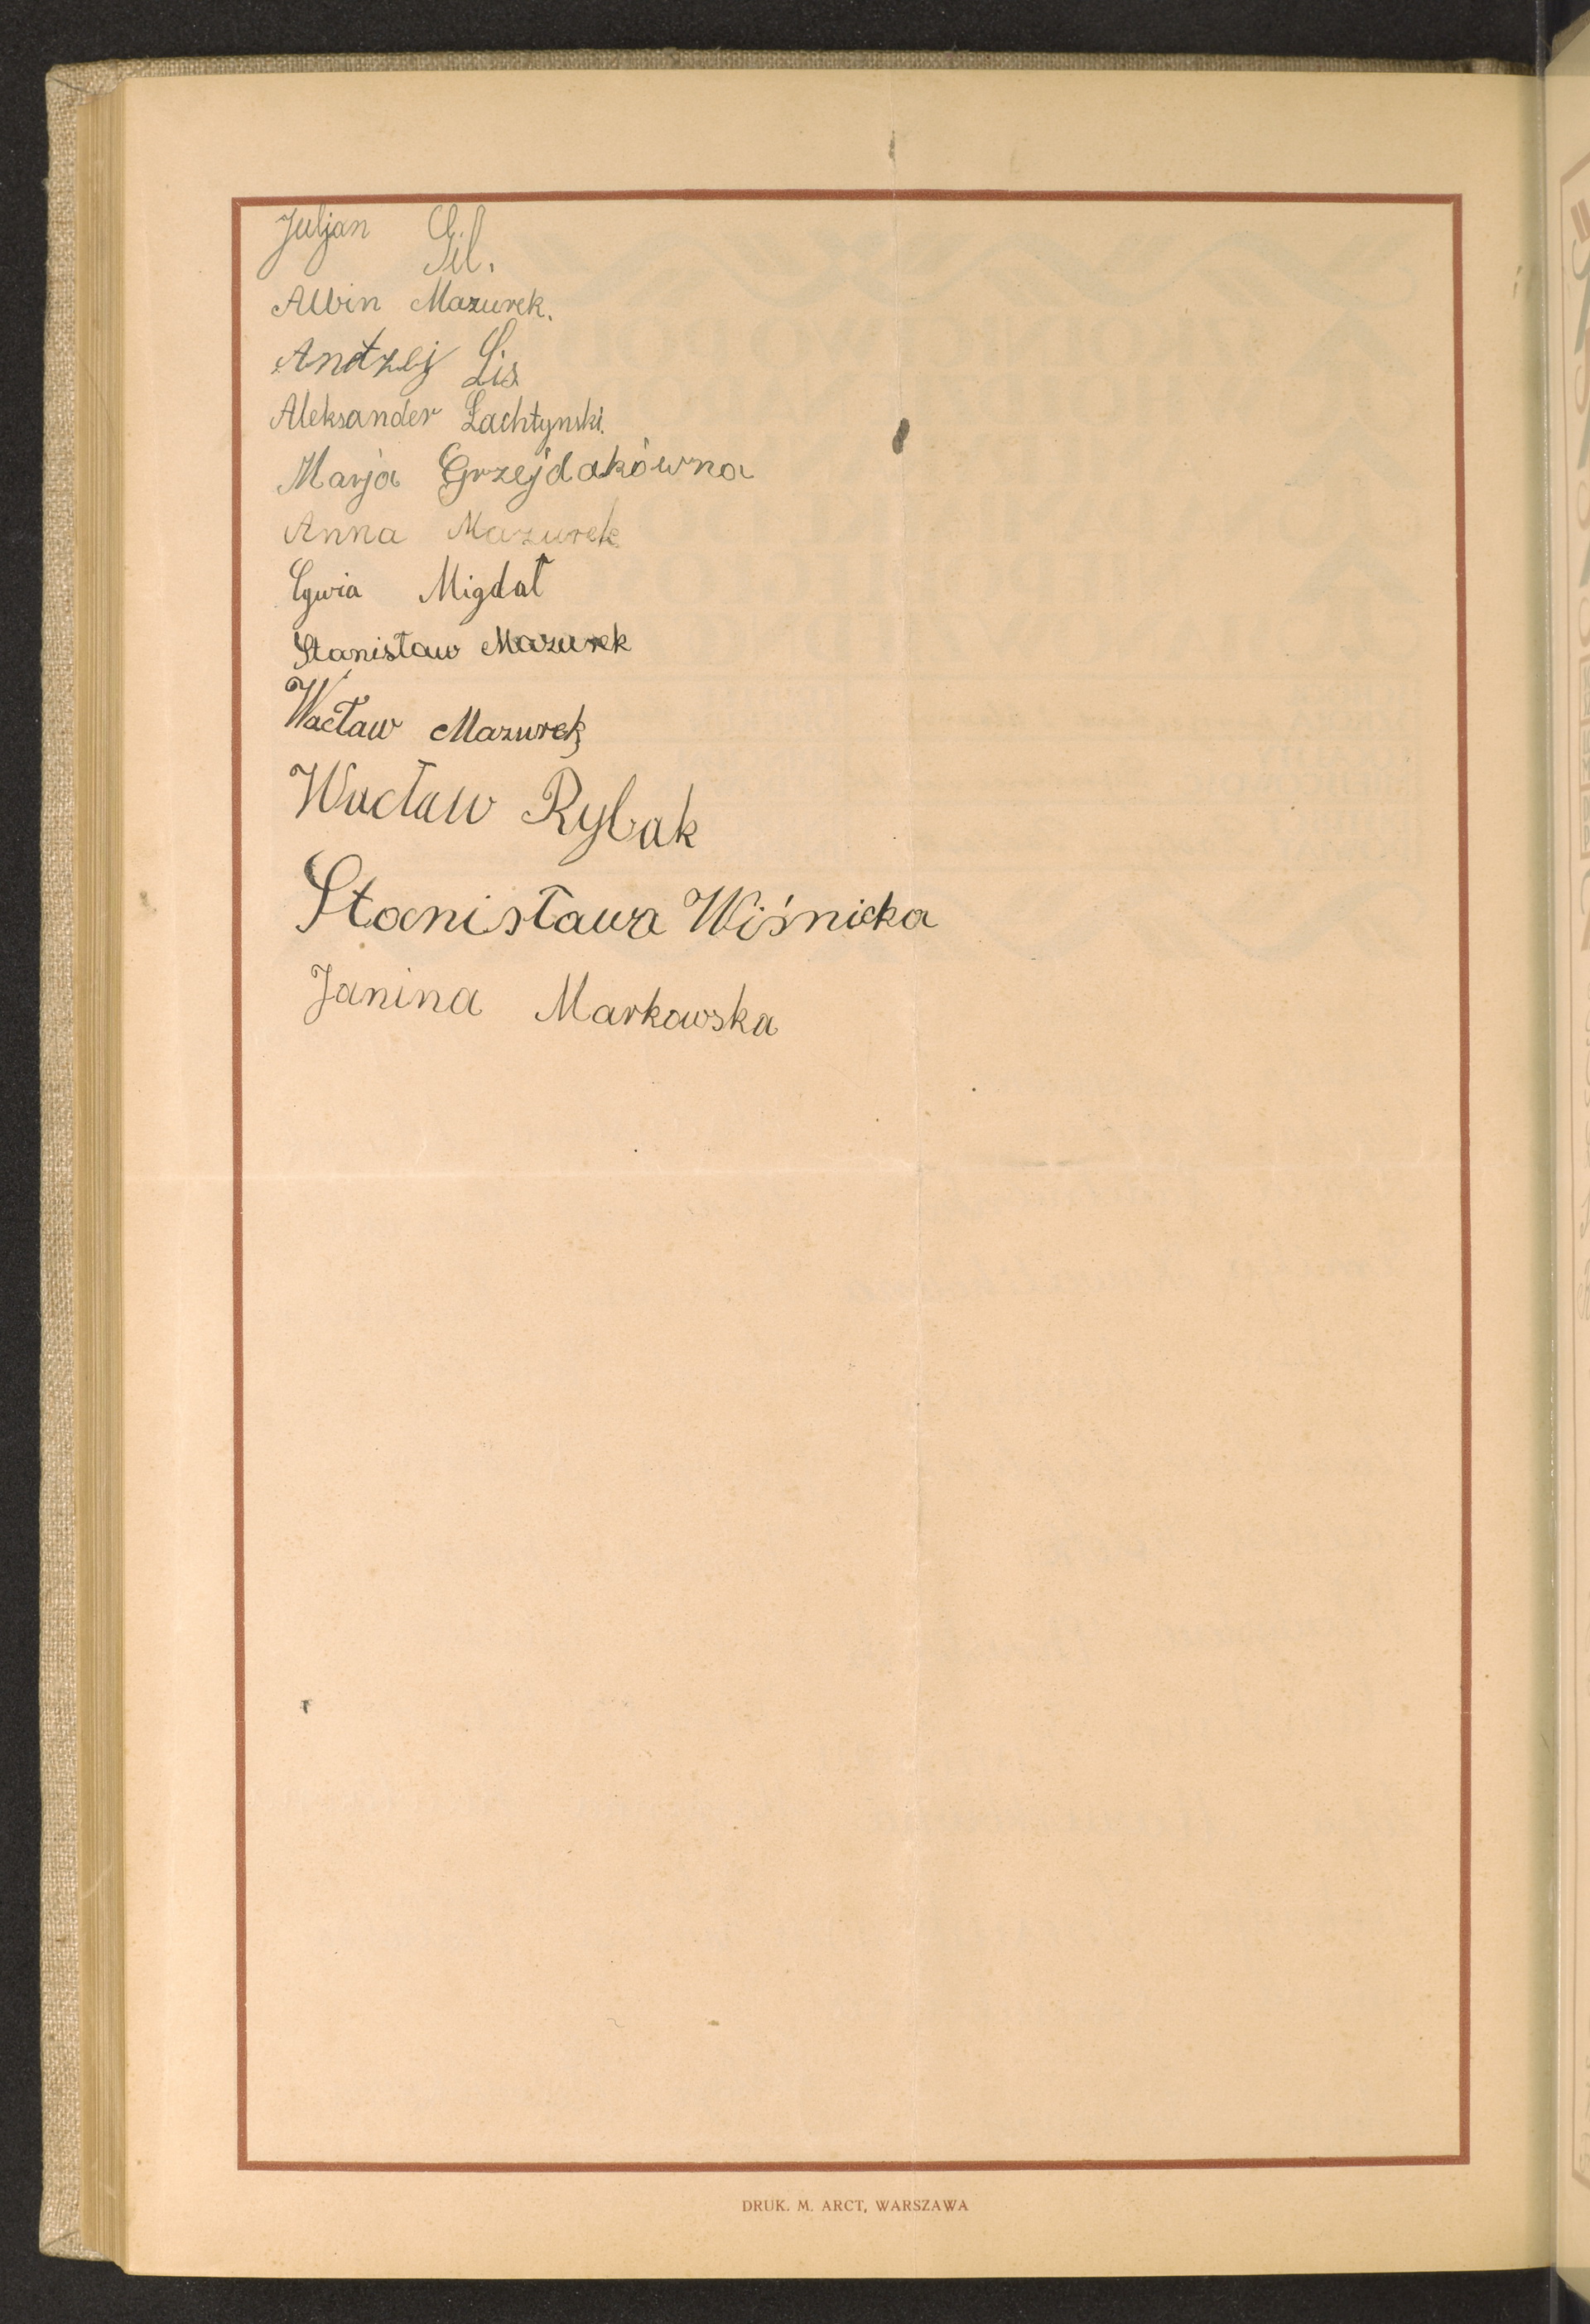 Juljan Gil.
Albin Mazurek.
Andrzej Lis
Aleksander Lachtynski.
Marja Grzejdakówna
Anna Mazurek
Cywia Migdał
Stanisław Mazurek
Wacław Mazurek
Wacław Rybak
Stanisława Wiśnicka
Janina Markowska
DRUK. M. ARCT, WARSZAWA